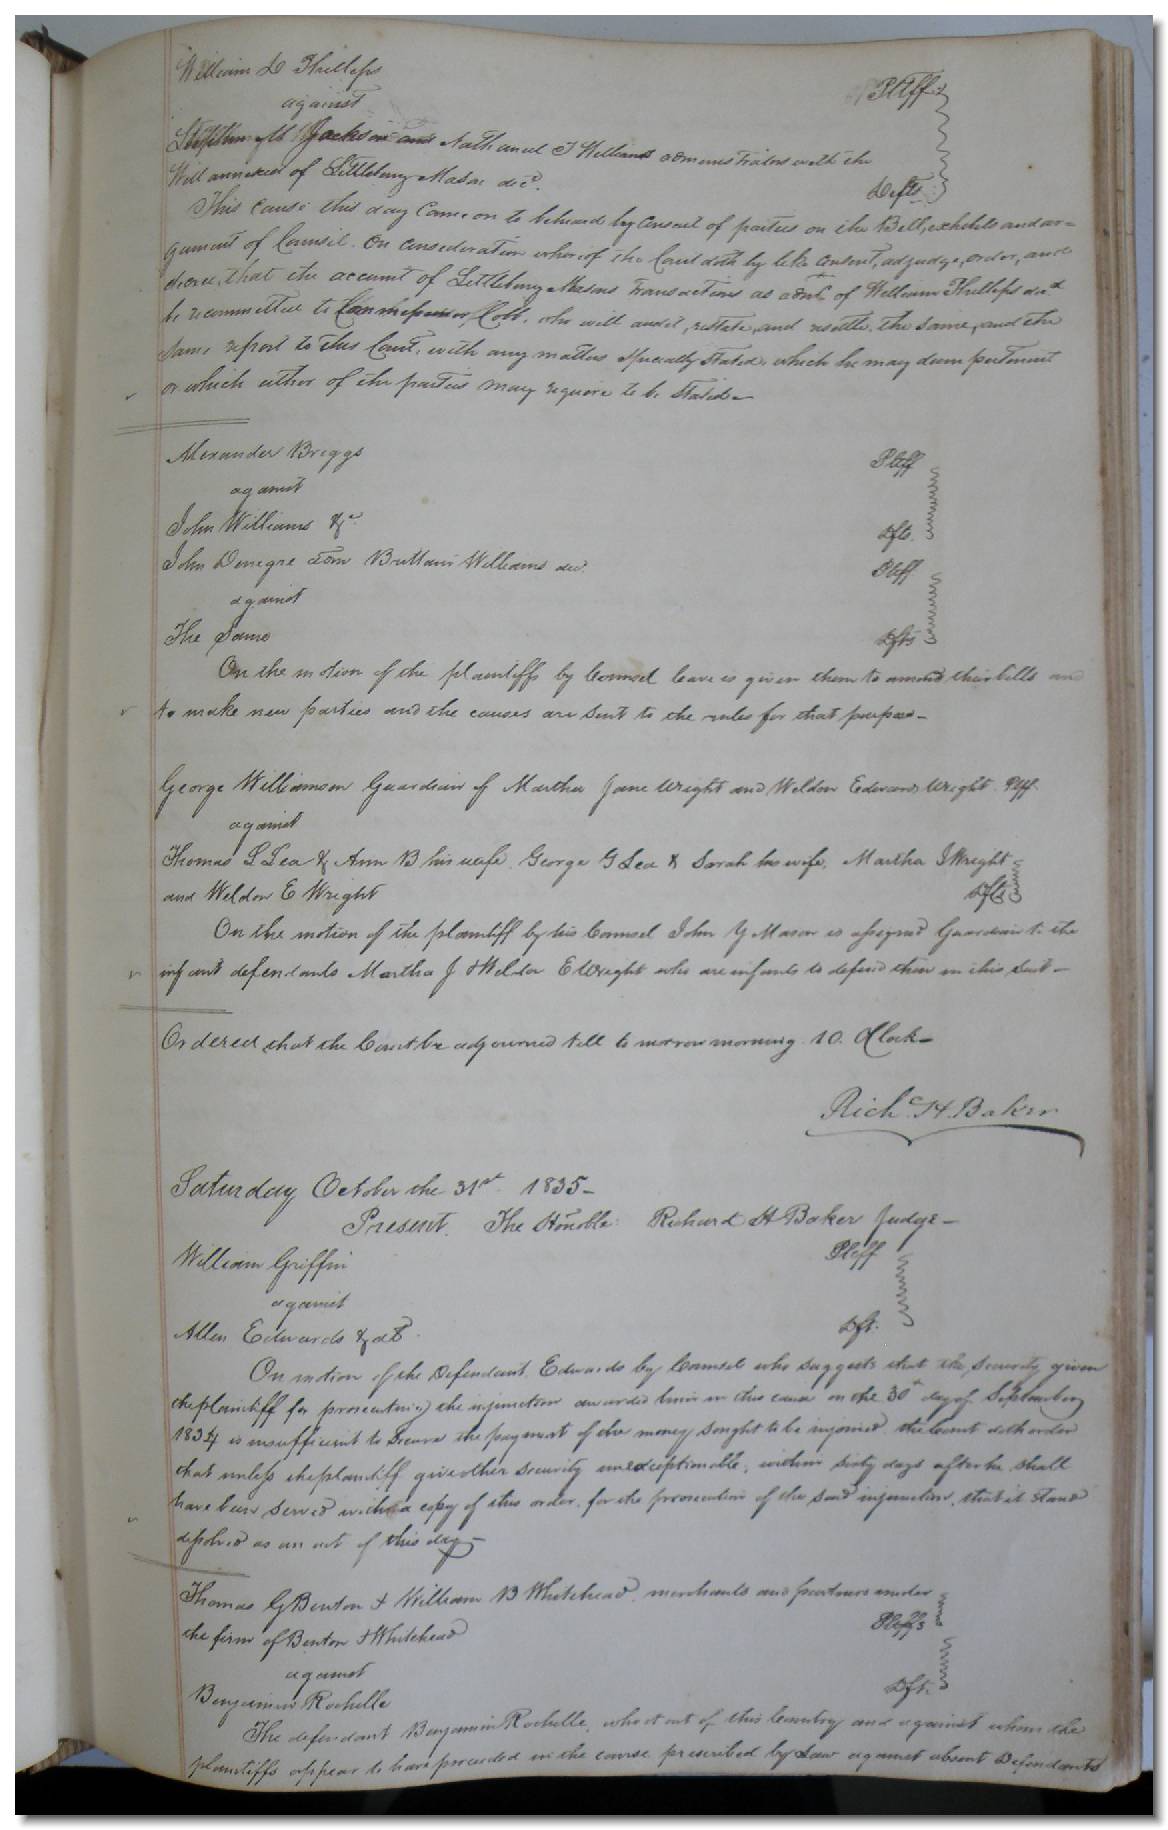 William D Phillips
against Pltff
Stephen M Jackson and Nathaniel T Williams administrators with the
Will annexed of Littlebury Mason decd. Defts.
This cause this day came on to be heard by consent of parties on the Bill, exhibits and ar-
gument of Counsil. On consideration whereof the Court doth by like consent, adjudge, order, and
decree, that the account of Littlebury Masons transactions as admr. of William Phillips decd
be recommitted to Commissioner Cobb, who will audit, restate, and resettle, the same, and the
same report to this Court, with any matters specially stated, which he may deem pertinent
or which either of the parties may require to be stated—
Alexander Briggs Pltff
against
John Williams &c Dfts.
John Denegre admr Brittain Williams decd. Pltff
against
The Same Dfts
On the motion of the plaintiffs by Counsel leave is given them to amend their bills and
to make new parties and the causes are sent to the rules for that purpose—
George Williamson Guardian of Martha Jane Wright and Weldon Edwards Wright Pltf.
against
Thomas L Lea & Ann B his wife, George G Lea & Sarah his wife, Martha J Wright
and Weldon E Wright Dfts
On the motion of the plaintiff by his Counsel John Y Mason is assigned Guardian to the
infant defendants Martha J & Weldon E Wright who are infants to defend them in this suit—
Ordered that the Court be adjourned till to morrow morning 10. Oclock—
Richd H. Baker
Saturday October the 31st 1835—
Present. The Honoble: Richard H Baker Judge—
William Griffin Pltff
against
Allen Edwards & als. Dft.
On motion of the Defendant, Edwards by Counsel who suggests that the security given
the plaintiff for prosecuting the injunction awarded him in this cause on the 30th day of September
1834 is insufficient to secure the payment of the money sought to be injoined, the Court doth order
that unless the plaintiff give other security unexceptionable, within sixty days after he shall
have been served with a copy of this order, for the prosecution of the said injunction, that it stand
dissolved as an act of this day—
Thomas G Benton & William B Whitehead, merchants and partners under
the firm of Benton & Whitehead Pltffs
against
Benjamin Rochelle Dft.
The defendant Benjamin Rochelle, who is out of this Country and against whom the
plaintiffs appear to have proceeded in the course prescribed by Law against absent Defendants